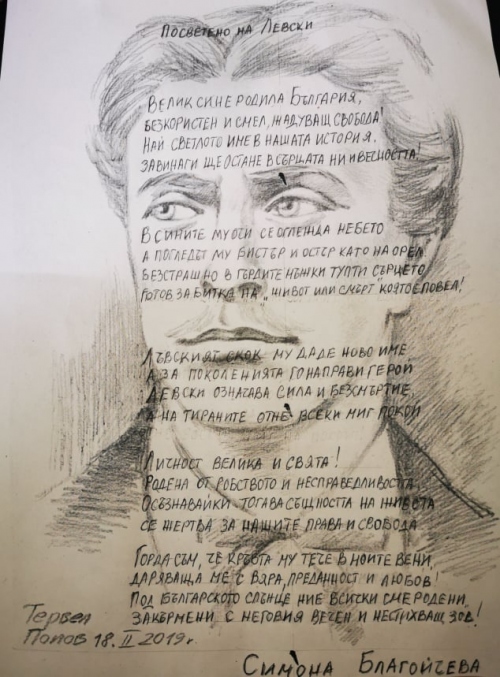 Посветено на Левски
Велик син е родила България,
безкористен и смел, жадуващ свобода!
Най светлото име в нашата история.
Завинаги ще остане в сърцата ни и вечността!
В сините му очи се оглежда небето
а погледът му бистър и остър като на орел
Безстрашно в гърдите мъжки тупти сърцето
готов за битка на "живот или смърт" която е повел!
Лъвският скок му даде ново име
а за поколенията го направи герой
Левски означава сила и безсмъртие
а на тираните отне всеки миг покой
Личност велика и свята!
Родена от робството и несправедливостта.
Осъзнавайки тогава същността на живота
се жертва за нашите права и свобода
Горда съм, че кръвта му тече в моите вени,
даряваща ме с вяра, преданност и любов!
Под българското слънце ние всички сме родени,
закърмени с неговия вечен и нестихващ зов!
Тервел
Попов 18.II 2019г
Симона Благойчева